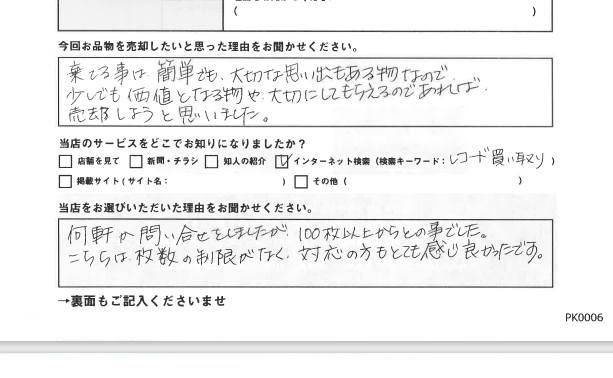 (　　　　　　　　　　)
今回お品物を売却したいと思った理由をお聞かせください。
棄てる事は簡単でも、大切な思い出もある物なので
少しでも価値となる物や、大切にしてもらえるのであれば
売却しようと思いました。
当店のサービスをどこでお知りになりましたか？
□ 店舗を見て □ 新聞・チラシ □ 知人の紹介 ☑ インターネット検索（検索キーワード：レコード買い取り）
□ 掲載サイト（サイト名：　　　　　　　　　　） □ その他（　　　　　　　　　　）
当店をお選びいただいた理由をお聞かせください。
何軒か問い合せをしましたが、100枚以上からとの事でした。
こちらは枚数の制限がなく、対応の方もとても感じ良かったです。
→裏面もご記入くださいませ
PK0006